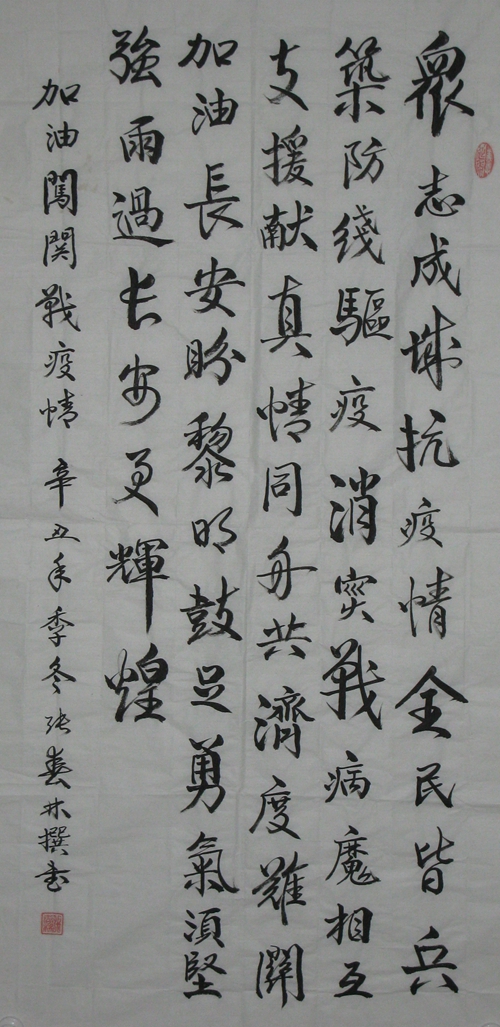 眾志成城抗疫情全民皆兵
築防线驅疫消灾戰病魔相互
支援献真情同舟共濟度難關
加油長安盼黎明鼓足勇氣須堅
強雨過长安更輝煌
加油闖関戰疫情 辛丑年季冬张春林撰书